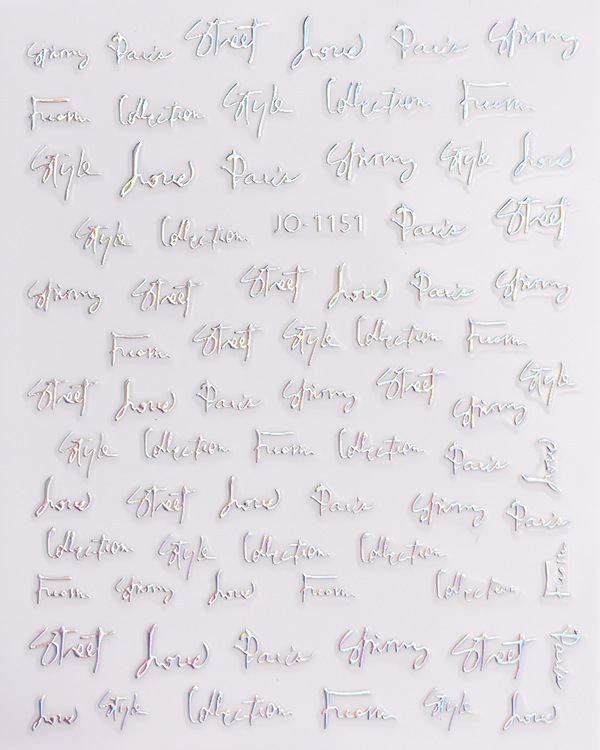 Spirmy Paris Street Love Paris Spirmy
From Collection Style Collection From
Style Love Paris Spirmy Style Love
Style Collection JO-1151 Paris Street
Spirmy Street Street Love Paris Spirmy
From Street Style Collection From
Street Love Paris Spirmy Street Spirmy Style
Style Collection From Collection Paris Love
Love Street Love Paris Spirmy Paris
Collection Style Collection Collection
From Spirmy Love From Collection From
Street Love Paris Spirmy Street Paris
Love Style Collection From Style Love